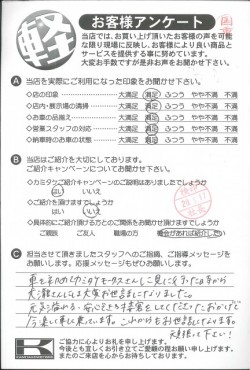 軽
お客様アンケート
当店では、お買い上げ頂いたお客様の声を可能
な限り現場に反映し、お客様により良い商品と
サービスを提供する事に努めています。
大変お手数ですが是非お声をお聞かせ下さい。
A 当店を実際にご利用になった印象をお聞かせ下さい。
◇店の印象 ◇大満足 満足 ふつう やや不満 不満
◇店内・展示場の清掃 ◇大満足 満足 ふつう やや不満 不満
◇お車の品揃え ◇大満足 満足 ふつう やや不満 不満
◇営業スタッフの対応 ◇大満足 満足 ふつう やや不満 不満
◇納車時のお車の状態 ◇大満足 満足 ふつう やや不満 不満
B 当店はご紹介を大切にしております。
ご紹介キャンペーンについてお聞かせ下さい。
◇カミタケご紹介キャンペーンのご説明はありましたでしょうか
はい いいえ
◇ご紹介を頂けますでしょうか
はい いいえ
◇具体的にご紹介頂ける方とのご関係をお聞かせ頂けますでしょうか
ご親族 ご友人 職場の方 機会があれば紹介したい
C 担当させて頂きましたスタッフへのご指摘、ご指導メッセージを
お願いします。応援メッセージもぜひお願いします。
お世話になりました。
今 楽しく車に乗っています。これからもお世話になります。
頑張って下さい!
ご協力に心よりお礼を申し上げます。
今後とも宜しくお引き立てご愛顧の程お願い申し上げます。
またのご来店を心からお待ちしております。